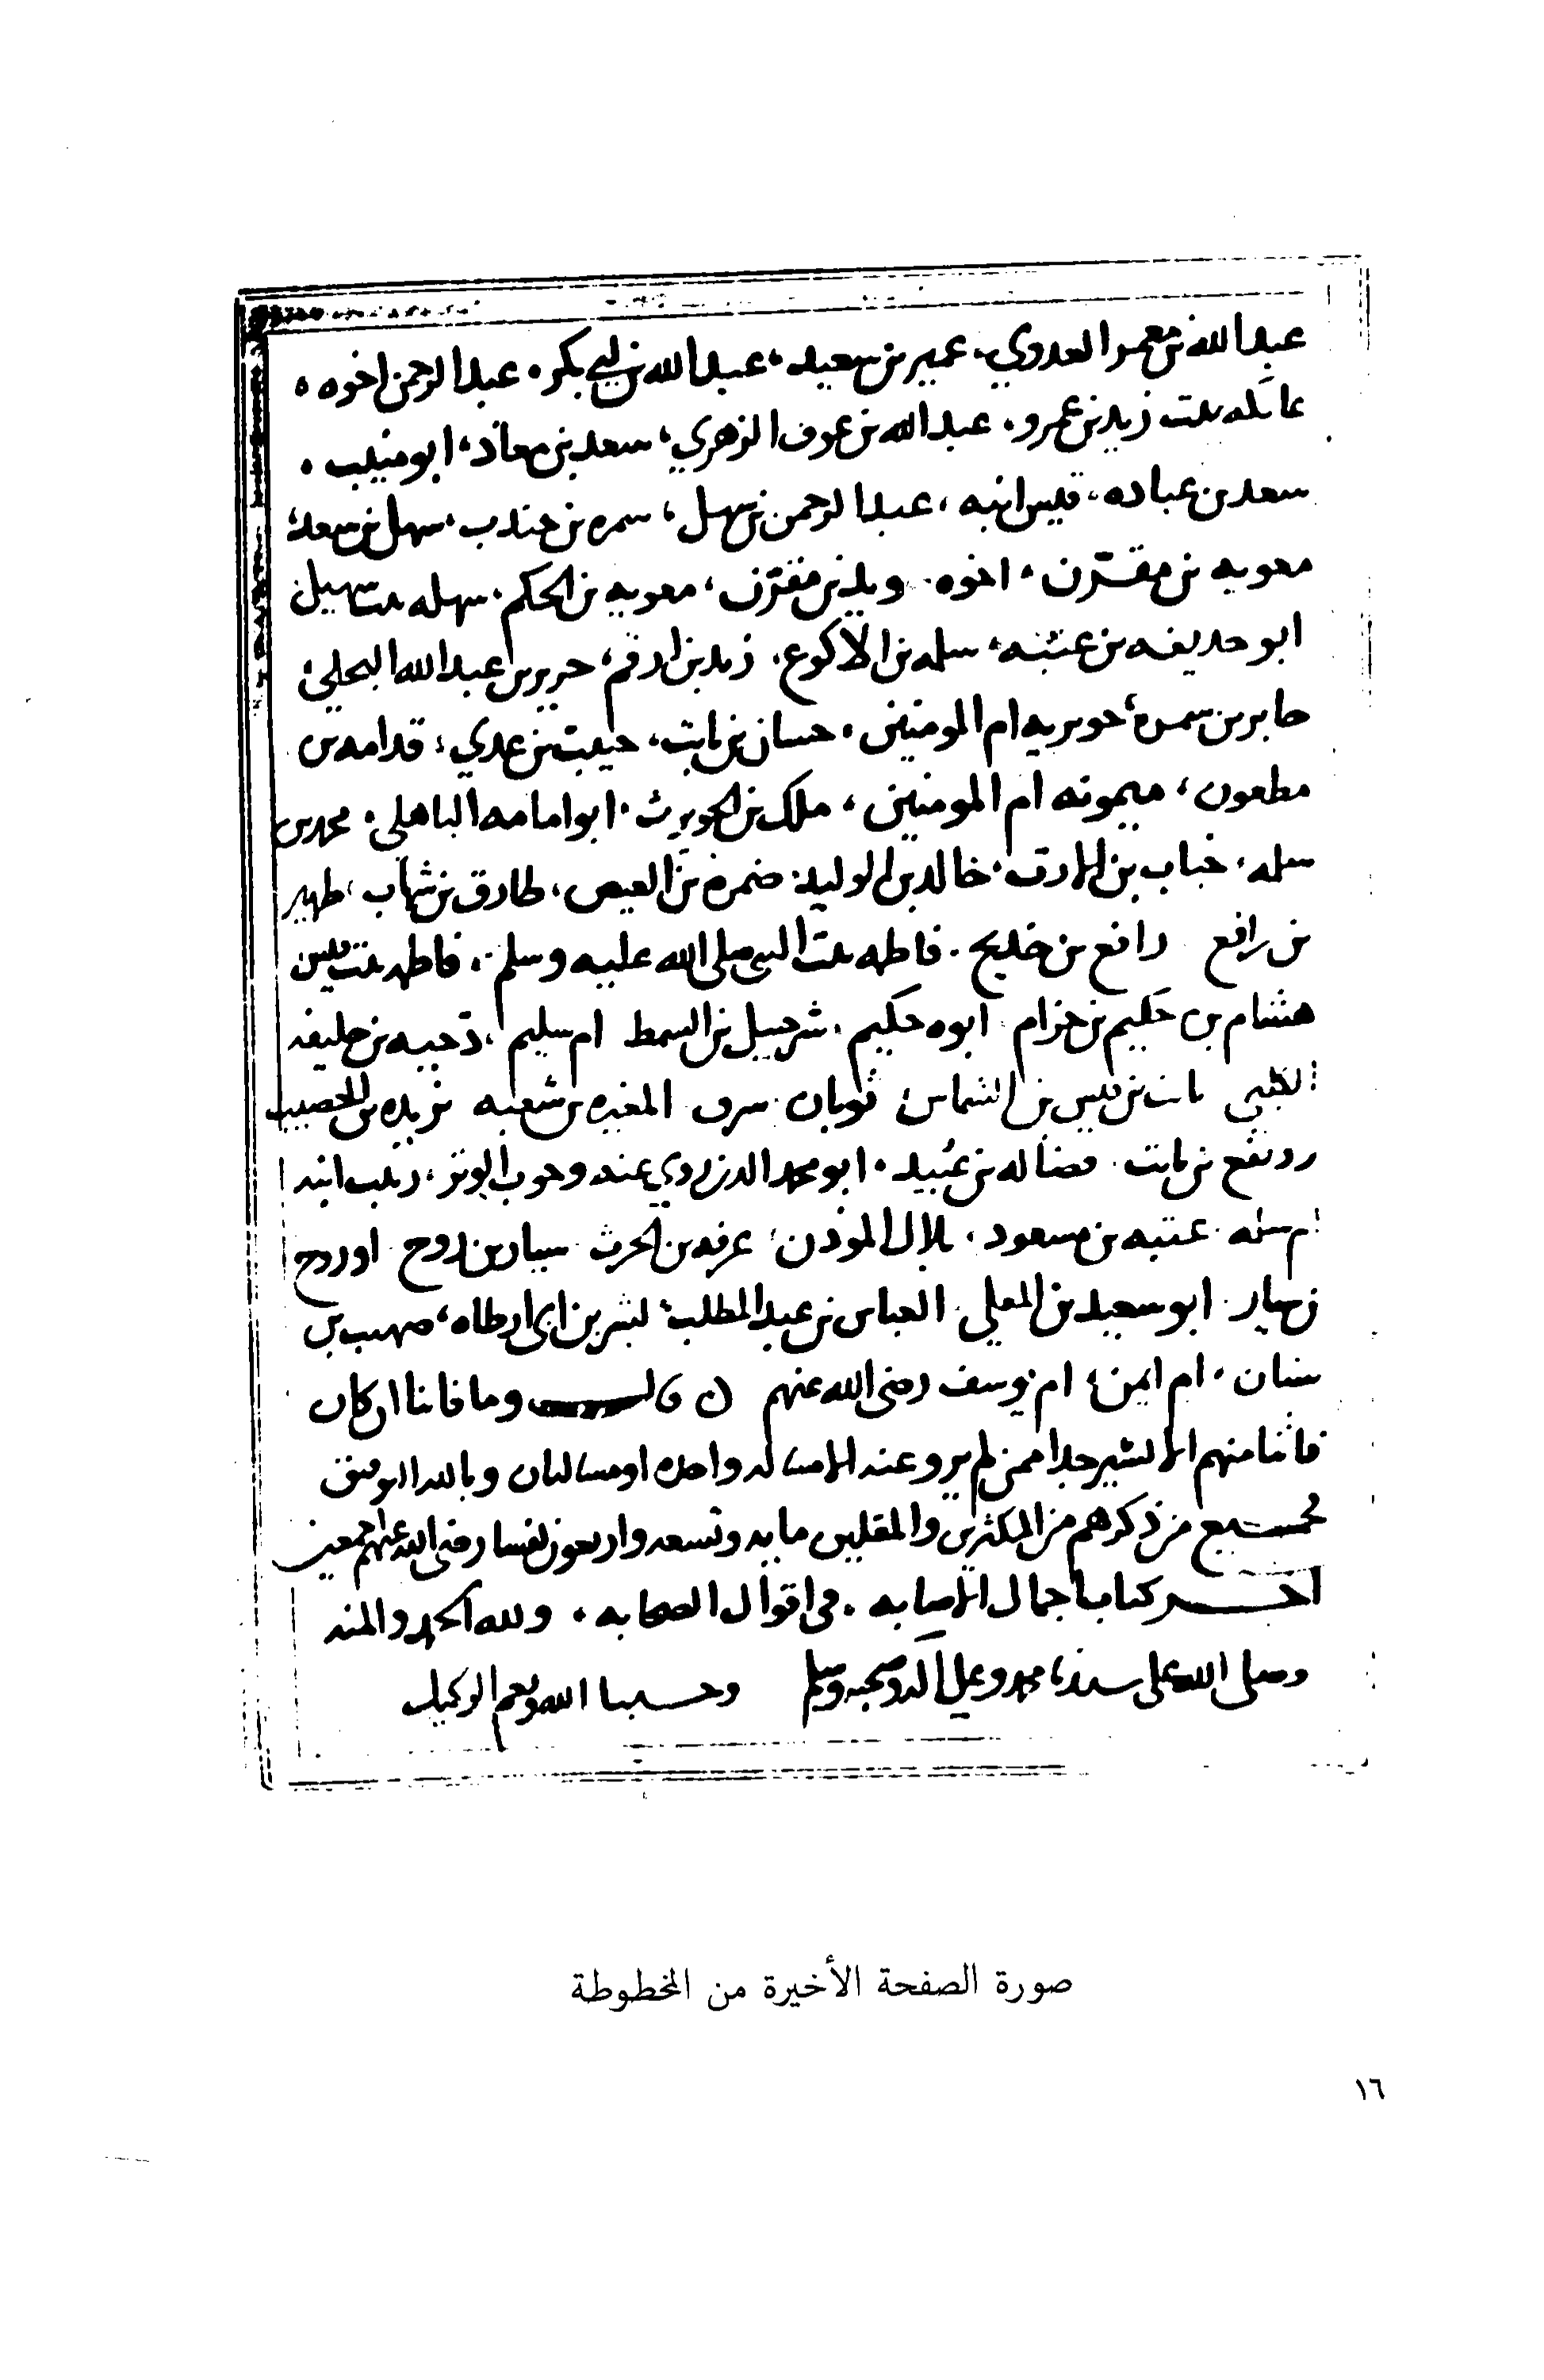 عبد الله بن معمر العدوي، عمير بن سعيد، عبد الله بن ابي بكر، عبد الرحمن اخوه،
عاتكه بنت زيد بن عمرو، عبد الله بن عوف الزهري، سعد بن معاذ، ابو منيب،
سعد بن عباده، قيس ابنه، عبد الرحمن بن سهل، سمره بن جندب، سهل بن سعد
معويه بن مقرن، اخوه، بن مقرن، معويه بن الحكم، سهله بنت سهيل
ابو حذيفه بن عتبه، سلمه بن الاكوع، زيد بن ارقم، جرير بن عبد الله البجلي
جابر بن سمره، جويريه ام المومنين، حسان بن ثابت، حبيب بن عدي، قدامه بن
مظعون، ميمونه ام المومنين، ملك بن الحويرث، ابو امامه الباهلي، محمد بن
سلمه، خباب بن الارت، خالد بن الوليد، ضمره بن العيص، طارق بن شهاب، ظهير
بن رافع رافع بن خديج، فاطمه بنت النبي صلى الله عليه وسلم، فاطمه بنت قيس
هشام بن حكيم بن حزام ابوه حكيم، شرحبيل بن السمط ام سليم، دحيه بن خليفه
الكلبي ثابت بن قيس بن الشماس ثوبان سرق المغيره بن شعبه بريده بن الحصيب
رويفع بن ثابت، فضاله بن عبيد، ابو محمد روي عنه وجوب الوتر، زينب ابنه
ام سلمه عتبه بن مسعود، بلال الموذن، عرفه بن الحرث سيار بن روح او روح
بن سيار ابو سعيد بن المعلى العباس بن عبد المطلب، بشر بن ابي ارطاه، صهيب بن
سنان، ام ايمن، ام يوسف رضي الله عنهم ن قلت وما فاتنا ان كان
فاتنا منهم الا اليسير جدا ممن لم يرو عنه الا مساله واحده او مسالتان وبالله التوفيق
فجميع من ذكرهم من المكثرين والمقلين مايه وتسعه واربعون نفسا رضي الله عنهم اجمعين
اخر كتاب اجمال الاصابه، في اقوال الصحابه، ولله الحمد والمنه
وصلى الله على سيدنا محمد وعلى اله وصحبه وسلم وحسبنا الله ونعم الوكيل
صورة الصفحة الأخيرة من المخطوطة
١٦